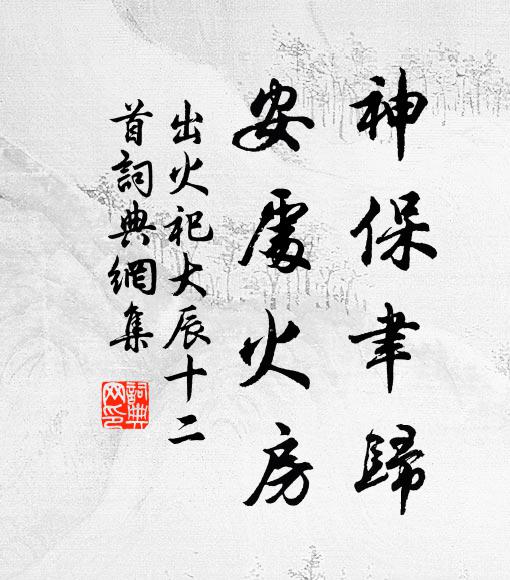 神保聿歸
安處火房
出火祀大辰十二
首詞典網集
詞典
网印